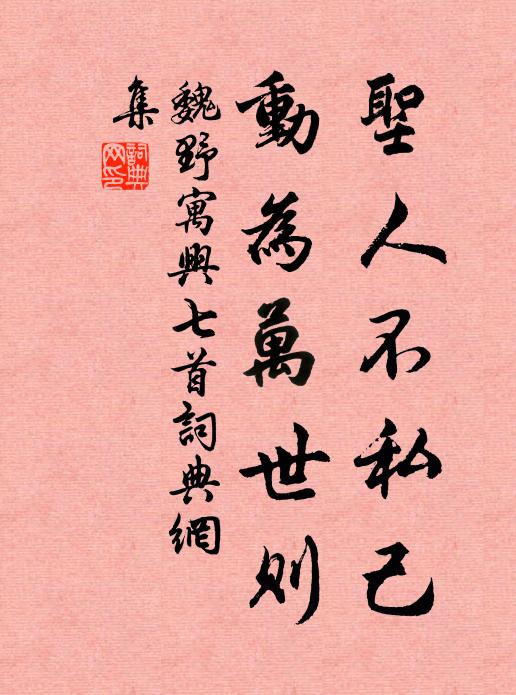 聖人不私己
動為萬世則
魏野寓興七首詞典網
集
詞典
网印